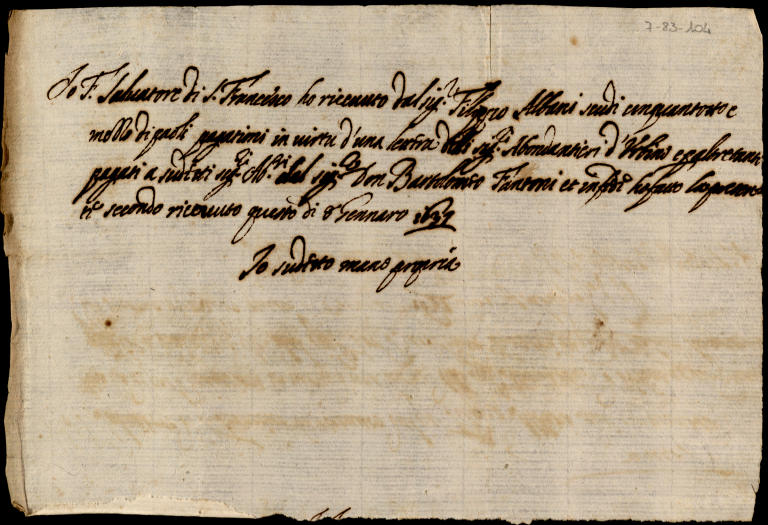 7-83-104
Io F. Salvatore di S. Francesco ho riceuuto dal sig.r Filippo Albani scudi cinquantotto e
mezzo di paoli pagatimi in virtù d'una lettera delli sig.ri Abondantieri d'Urbino e gl'altretanti
pagati a sudetti sig.ri del sig.re Don Bartolomeo Fantoni et in fede ho fatto la presen
te secondo riceuuto questo di 8 Gennaro 1637
Io sudetto mano propria